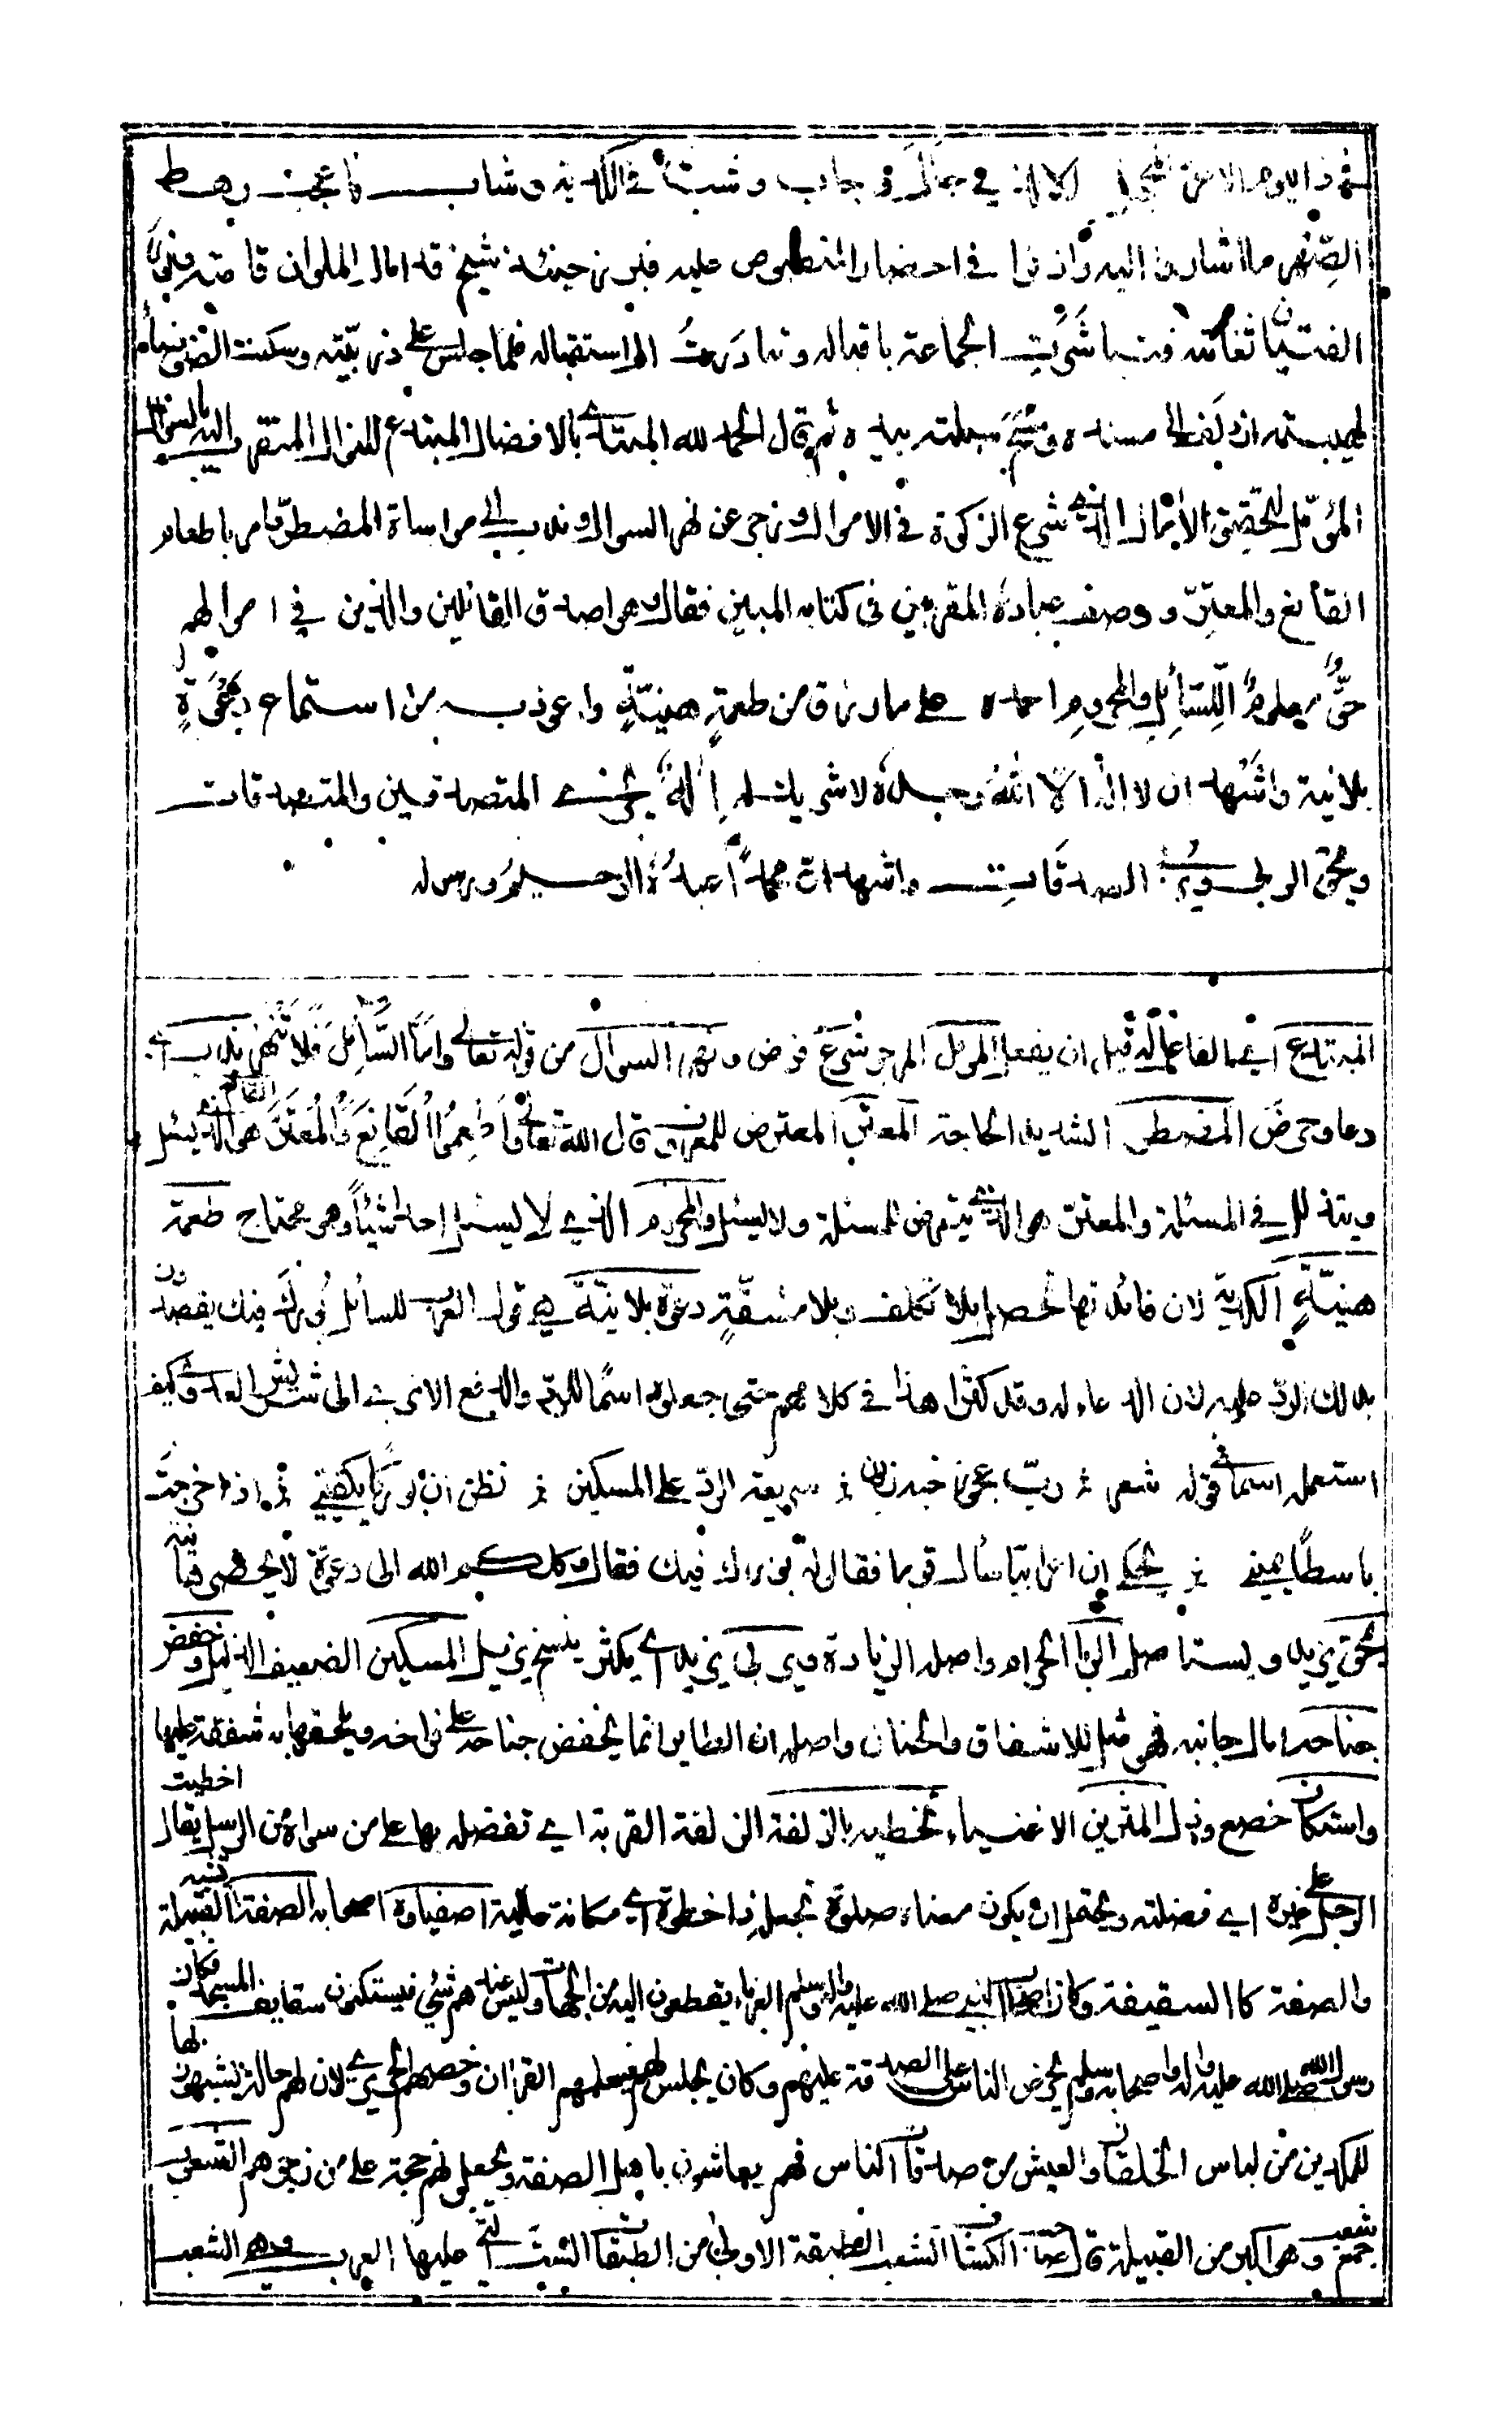 في ذا اليوم الاغر المحجل الا الذي جال و جاب وشب في الكدية وشاب فاعجب رهط
الصهر ما اشاروا اليه واذنوا في احضار المنصوص عليه فبرز حينئذ شيخ قد امال الملوان قامته ونور
الفتيان ثغامته فتباشرت الجماعة باقباله وتبادرت الى استقباله فلما جلس على زربيته وسكنت الضوضاء
لهيبته ازدلف الى مسنده ومسح سبلته بيده ثم قال الحمد لله المبتدئ بالافضال المبتدع للنوال المتقرب اليه بالسؤال
المؤمل لتحقيق الآمال الذي شرع الزكوة في الاموال وزجر عن نهر السوال وندب الى مواساة المضطر وامر باطعام
القانع والمعتر ووصف عباده المقربين في كتابه المبين فقال وهو اصدق القائلين والذين في اموالهم
حق معلوم للسائل والمحروم احمده على ما رزق من طعمة هنيئة واعوذ به من استماع دعوة
بلانية واشهد ان لا اله الا الله وحده لا شريك له اله يجزي المتصدقين والمتصدقات
ويمحق الربوا ويربي الصدقات واشهد ان محمدا عبده الرحيم ورسوله
المبتدع الفاعل له قبل ان يفعل المؤمل المرجو شرع فرض ونهر السوال من قوله تعالى واما السائل فلا تنهر ندب اي
دعا وحرض المضطر الشديد الحاجة المعتر المعترض للمعروف قال الله تعالى واطعموا القانع والمعتر القانع هو الذي يسئل
ويتذلل في المسئلة والمعتر هو الذي يتعرض للمسئلة ولا يسئل والمحروم الذي لا يسئل احدا شيئا وهو محتاج طعمة
هنيئة الكدية لان فائدتها تحصل بلا تكلف وبلا مشقة دعوة بلانية هو قول العرب للسائل بورك فيك يقصدون
بذلك الرد عليه لان الدعاء له وقد كثر هذا في كلامهم حتى جعلوه اسما للرد والدفع الا ترى الى كيف
استعمل اسما في قوله شعر رب عجوز خبة زبون سريعة الرد على المسكين تظن ان بوركا يكفيني اذا خرجت
باسطا يميني يحكى ان اعرابيا سأل قوما فقالوا له بورك فيك فقال وكلكم الله الى دعوة لا يحضرها نية
يمحق يزيل ويستاصل الربوا الحرام واصله الزيادة ويربي يزيد اي يكثر ينسخ يزيل المسكين الضعيف الذليل وخفض
جناحه امال جانبه فهو مثل للاشفاق والحنان واصله ان الطاير انما يخفض جناحه على فراخه ويلحفها به شفقة عليها
واستكان خضع وذل المثرين الاغنياء تحظيه بالزلفة الزلفة القربة اي تفضله بها على من سواه من الرسل يقال اخطيت
الرجل على غيره اي فضلته ويحتمل ان يكون معناه صلوة تجعله ذا حظوة اي مكانة عالية اصفياؤه اصحابه الصفة القبيلة
والصفة كالسقيفة وكان اصحاب النبي صلى الله عليه واله وسلم الغرباء يقطعون اليه من الجهات وليس عندهم شيء فيسكنون سقايف المسجد فكان
رسول الله صلى الله عليه واله واصحابه وسلم يحرض الناس على الصدقة عليهم وكان يجلس لهم فيعلمهم القرآن وخصهم الحريري لان لهم حالة يشبهون بها
للمكدين من لباس الخلقان والعيش من صدقات الناس فهم يعاشون باهل الصفة ويجعلونهم حجة على من زجرهم الشعوب
جمع شعب وهو اكبر من القبيلة قال صاحب الكشاف الشعب الطبقة الاولى من الطبقات الست التي عليها العرب وهي الشعب